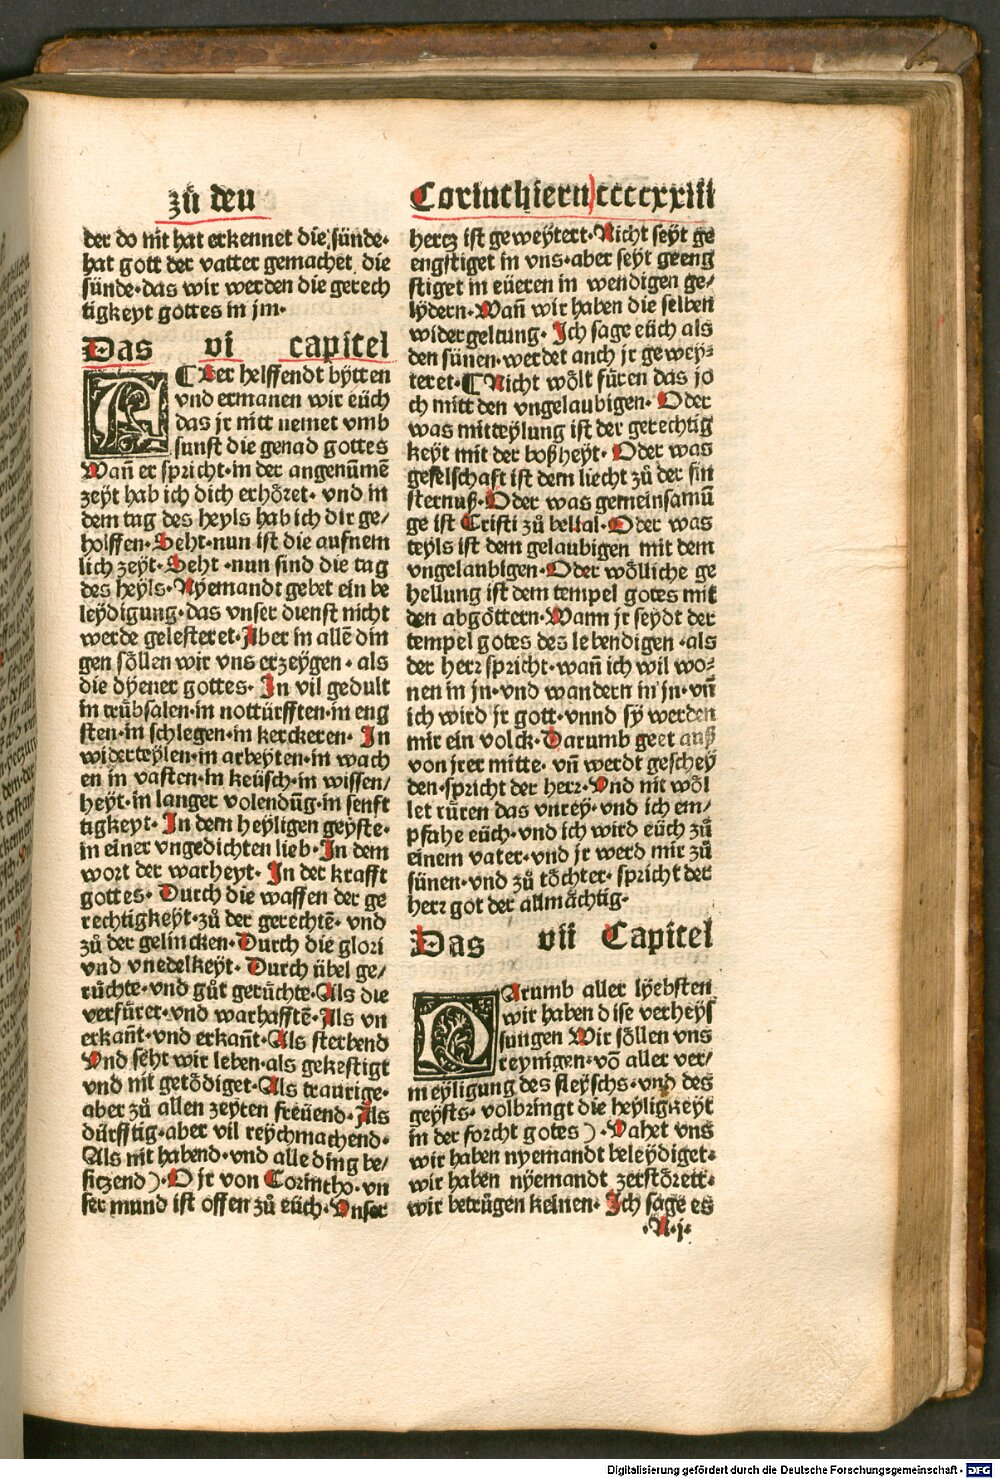 zů den
Corinthiern ccccxxiii
der do nit hat erkennet die sünde·
hat gott der vatter gemachet die
sünde·das wir werden die gerech
tigkeyt gottes in jm·
Das vi capitel
¶ Wer helffendt bÿtten
vnd ermanen wir eüch
das jr nitt nemet vmb
sunst die genad gottes
Wañ er spricht·in der angenūmē
zeÿt hab ich dich erhöret· vnd in
dem tag des heyls hab ich dir ge/
holffen·Seht·nun ist die aufnem
lich zeÿt·Seht ·nun sind die tag
des heÿls·Nÿemandt gebet ein be
leÿdigung·das vnser dienst nicht
werde gelesteret·Aber in allē din
gen söllen wir vns erzeÿgen· als
die dÿener gottes· In vil gedult
in trübsalen·in nottürfften·in eng
sten·in schlegen·in kerckeren· In
widerteylen·in arbeyten·in wach
en in vasten·in keüsch·in wissen/
heÿt·in langer volendūg·in senft
tigkeyt· In dem heyligen geÿste·
in einer vngedichten lieb·In dem
wort der warheyt· In der krafft
gottes· Durch die waffen der ge
rechtigkeÿt·zů der gerechtē· vnd
zů der gelincken·Durch die glori
vnd vnedelkeÿt· Durch übel ge/
rüchte·vnd gůt gerüchte·Als die
verfürer·vnd warhafftē·Als vn
erkañt·vnd erkañt·Als sterbend
Vnd seht wir leben·als gekestigt
vnd nit getödiget·Als traurige·
aber zů allen zeÿten freüend·Als
dürfftig·aber vil reÿchmachend·
Als nit habend·vnd alle ding be/
siczend)·O jr von Corintho·vn
ser mund ist offen zů eüch·Vnser
hercz ist geweÿtert·Nicht seÿt ge
engstiget in vns·aber seÿt geeng
stiget in eüeren in wendigen ge/
lÿdern·Wañ wir haben die selben
widergeltung· Ich sage eüch als
den sünen·werdet auch jr geweÿ⸗
teret·¶Nicht wölt füren das jo
ch mitt den vngelaubigen· Oder
was mitteÿlung ist der gerechtig
keÿt mit der boßheÿt· Oder was
geselschaft ist dem liecht zů der fin
sternuß·Oder was gemeinsamū
ge ist Cristi zů belial·Oder was
teÿls ist dem gelaubigen mit dem
vngelaubigen·Oder wölliche ge
hellung ist dem tempel gotes mit
den abgöttern·Wann jr seÿdt der
tempel gotes des lebendigen ·als
der herr spricht·wañ ich wil wo⸗
nen in jn·vnd wandern in jn·vñ
ich wird jr gott·vnnd sÿ werden
mir ein volck·Darumb geet auß
von jrer mitte· vñ werdt geschey
den·spricht der herr·Vnd nit wöl
let rüren das vnrey·vnd ich em/
pfahe eüch·vnd ich wird eüch zů
einem vater·vnd jr werd mir zů
sünen·vnd zů töchter· spricht der
herr got der allmächtig·
Das vii Capitel
DArumb aller lÿebsten
wir haben dise verheÿs
sungen Wir söllen vns
reynigen·vō aller ver/
meyligung des fleÿschs·vnd des
geÿsts· volbringt die heyligkeÿt
in der forcht gotes)·Vahet vns
wir haben nyemandt beleÿdiget·
wir haben nÿemandt zerstörett·
wir betrügen keinen· Ich sage es
·N·j·
Digitalisierung gefördert durch die Deutsche Forschungsgemeinschaft - DFG